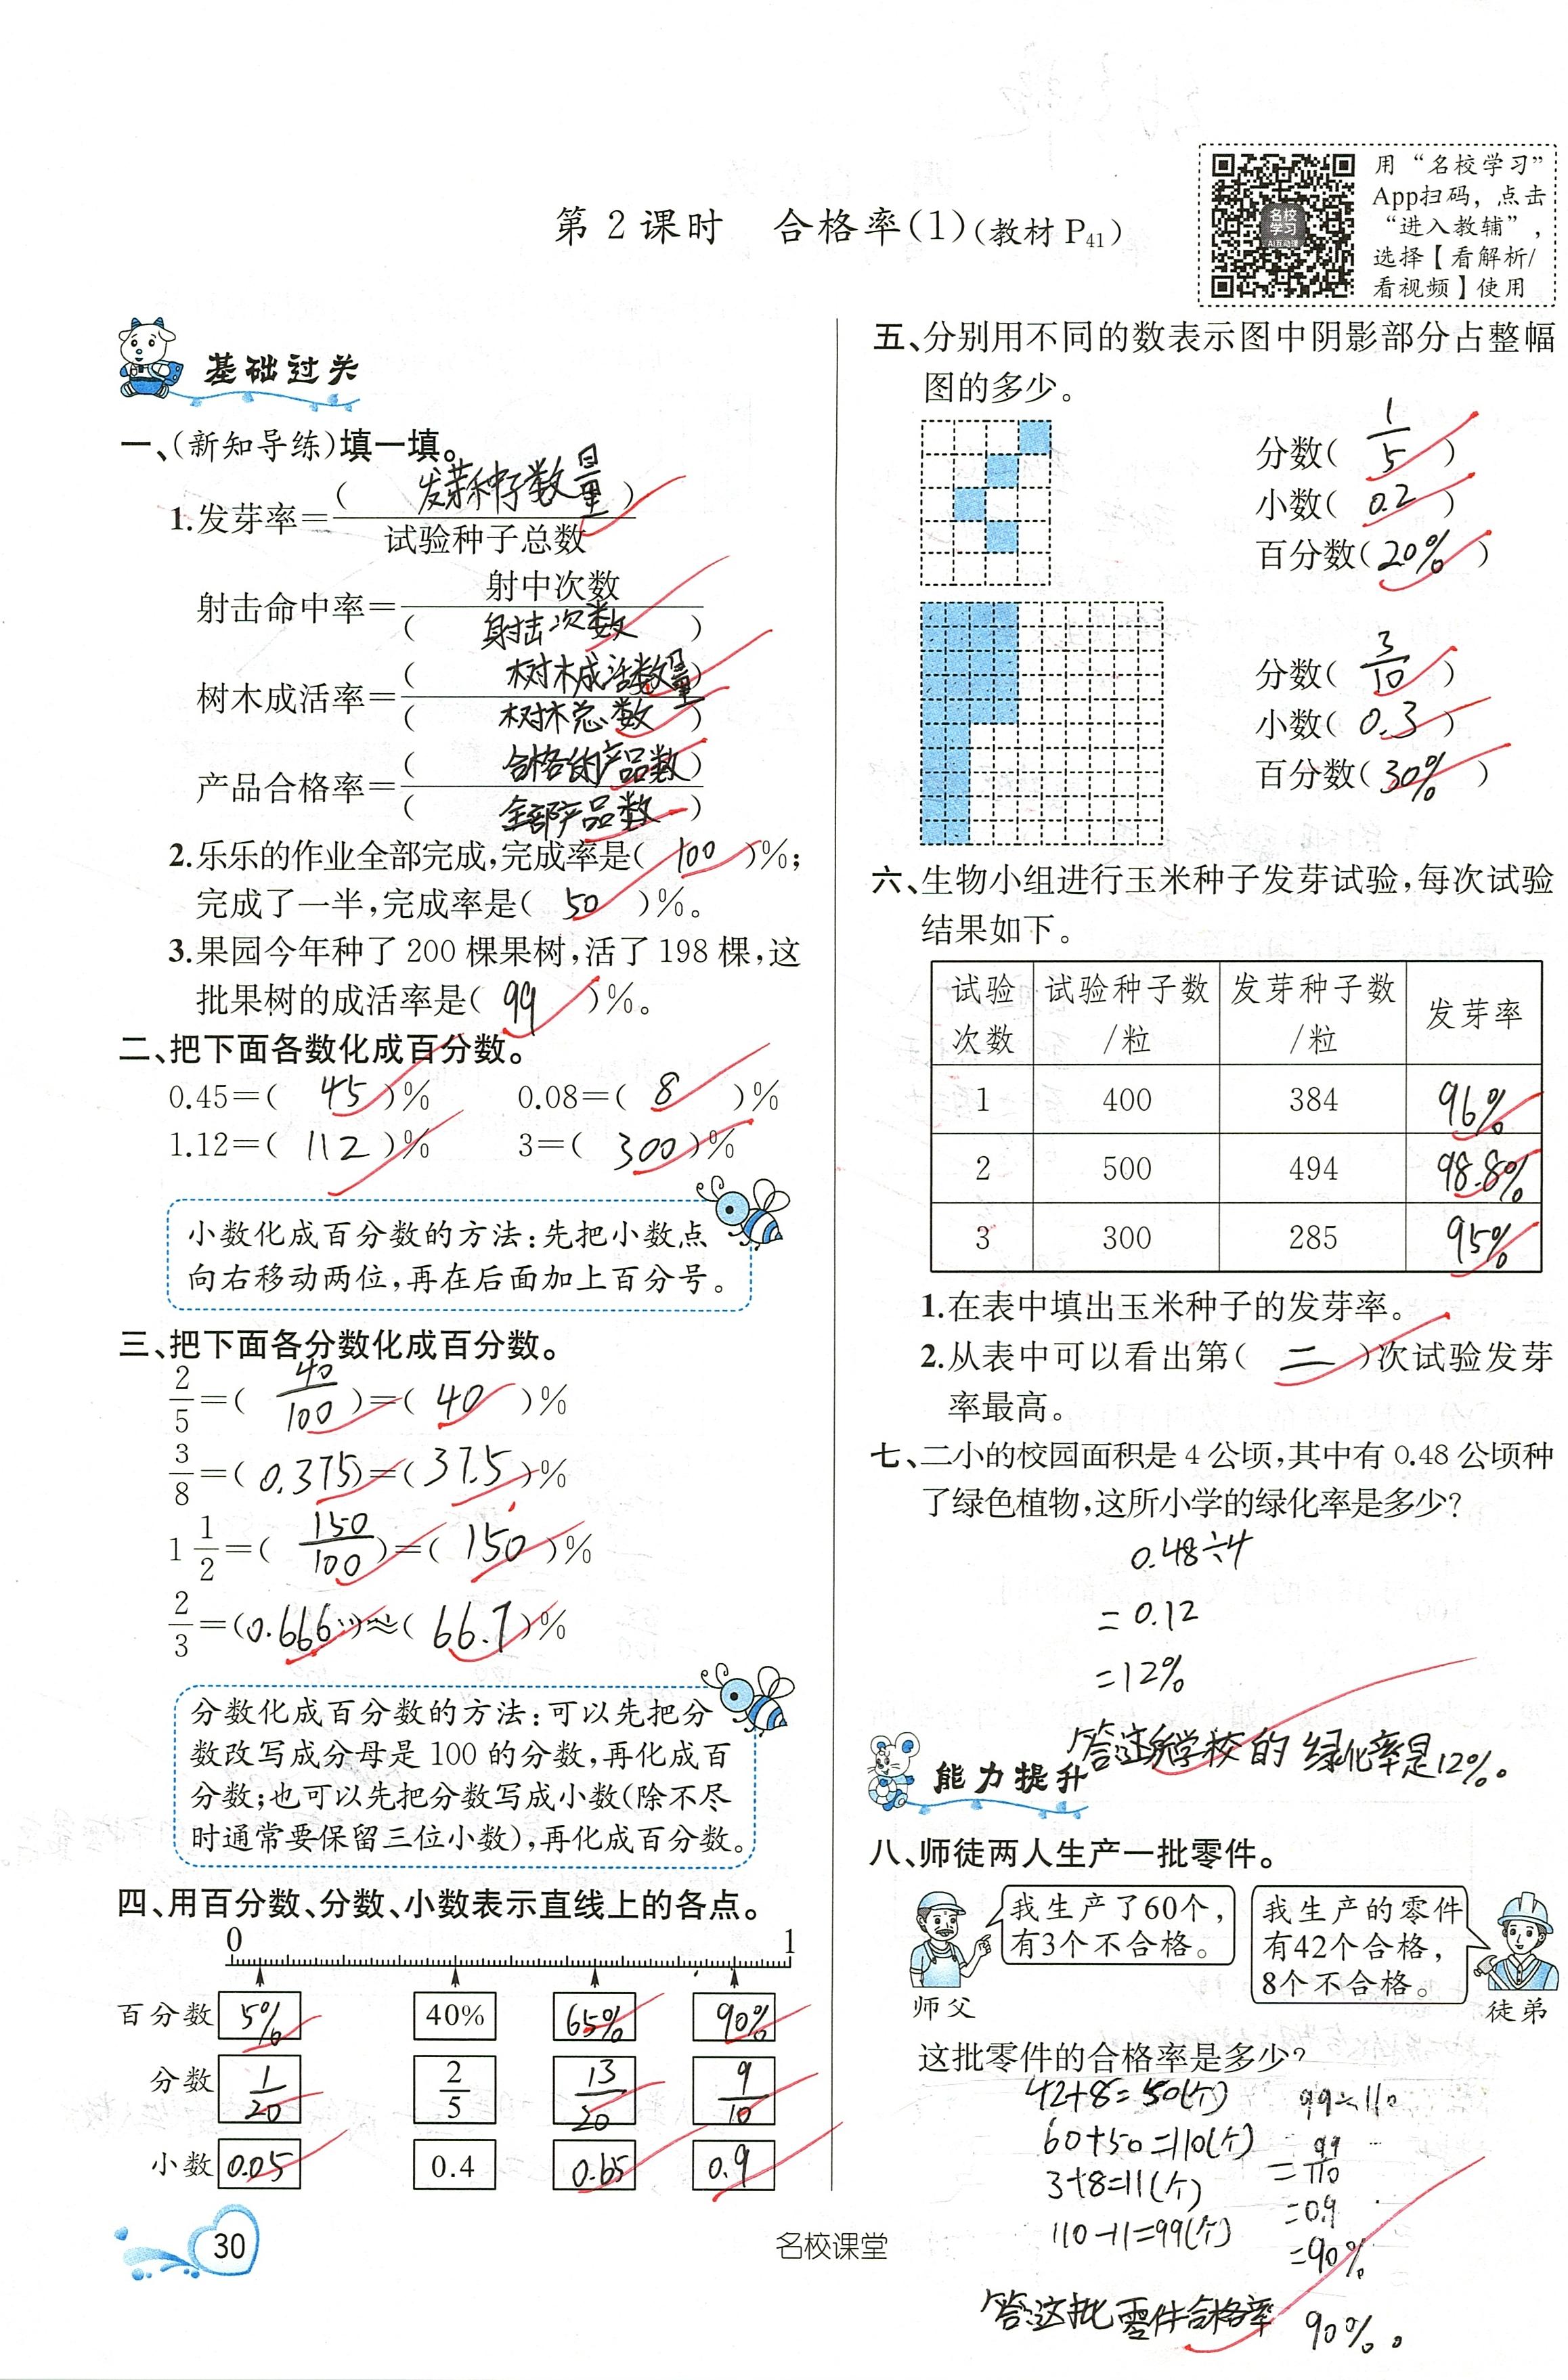 第2课时 合格率(1)(教材P41)
用“名校学习”
App扫码，点击
“进入教辅”，
选择【看解析/
看视频】使用
名校
学习
AI互动课
基础过关
一、(新知导练)填一填。
( 发芽种子数量 )
1.发芽率=
试验种子总数
射中次数
射击命中率=
( 射击次数 )
( 树木成活数量 )
树木成活率=
( 树木总数 )
( 合格的产品数 )
产品合格率=
( 全部产品数 )
2.乐乐的作业全部完成,完成率是( 100 )%;
完成了一半,完成率是( 50 )%。
3.果园今年种了200棵果树,活了198棵,这
批果树的成活率是( 99 )%。
二、把下面各数化成百分数。
0.45=( 45 )% 0.08=( 8 )%
1.12=( 112 )% 3=( 300 )%
小数化成百分数的方法:先把小数点
向右移动两位,再在后面加上百分号。
三、把下面各分数化成百分数。
2/5=( 40/100 )=( 40 )%
3/8=( 0.375 )=( 37.5 )%
1 1/2=( 150/100 )=( 150 )%
2/3=( 0.666… )≈( 66.7 )%
分数化成百分数的方法:可以先把分
数改写成分母是100的分数,再化成百
分数;也可以先把分数写成小数(除不尽
时通常要保留三位小数),再化成百分数。
四、用百分数、分数、小数表示直线上的各点。
0 1
百分数 5% 40% 65% 90%
分数 1/20 2/5 13/20 9/10
小数 0.05 0.4 0.65 0.9
30
名校课堂
五、分别用不同的数表示图中阴影部分占整幅
图的多少。
分数( 1/5 )
小数( 0.2 )
百分数( 20% )
分数( 3/10 )
小数( 0.3 )
百分数( 30% )
六、生物小组进行玉米种子发芽试验,每次试验
结果如下。
试验次数 试验种子数/粒 发芽种子数/粒 发芽率
1 400 384 96%
2 500 494 98.8%
3 300 285 95%
1.在表中填出玉米种子的发芽率。
2.从表中可以看出第( 二 )次试验发芽
率最高。
七、二小的校园面积是4公顷,其中有0.48公顷种
了绿色植物,这所小学的绿化率是多少?
0.48÷4
=0.12
=12%
答:这所学校的绿化率是12%。
能力提升
八、师徒两人生产一批零件。
我生产了60个,
有3个不合格。
师父
我生产的零件
有42个合格,
8个不合格。
徒弟
这批零件的合格率是多少?
42+8=50(个)
60+50=110(个)
3+8=11(个)
110-11=99(个)
99÷110
=99/110
=0.9
=90%
答:这批零件合格率90%。